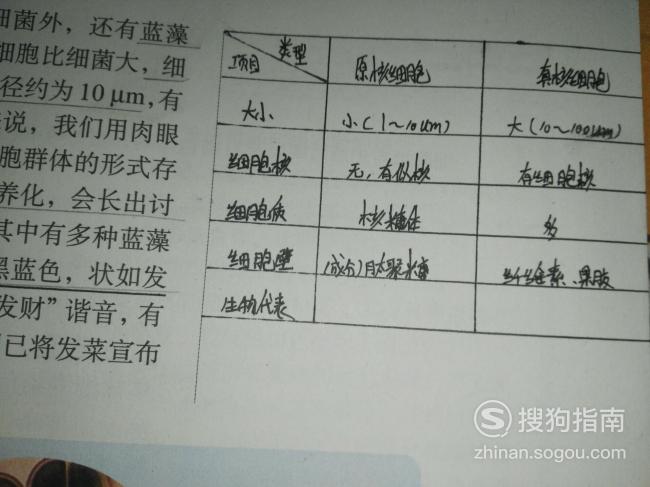 细菌外，还有蓝藻
细胞比细菌大，细
径约为10 μm，有
来说，我们用肉眼
胞群体的形式存
养化，会长出讨
其中有多种蓝藻
黑蓝色，状如发
发财”谐音，有
已将发菜宣布
类型
项目 原核细胞 真核细胞
大小 小(1~10um) 大(10~100um)
细胞核 无，有似核 有细胞核
细胞质 核糖体 多
细胞壁 (成分)肽聚糖 纤维素、果胶
生物代表
搜狗指南
zhinan.sogou.com